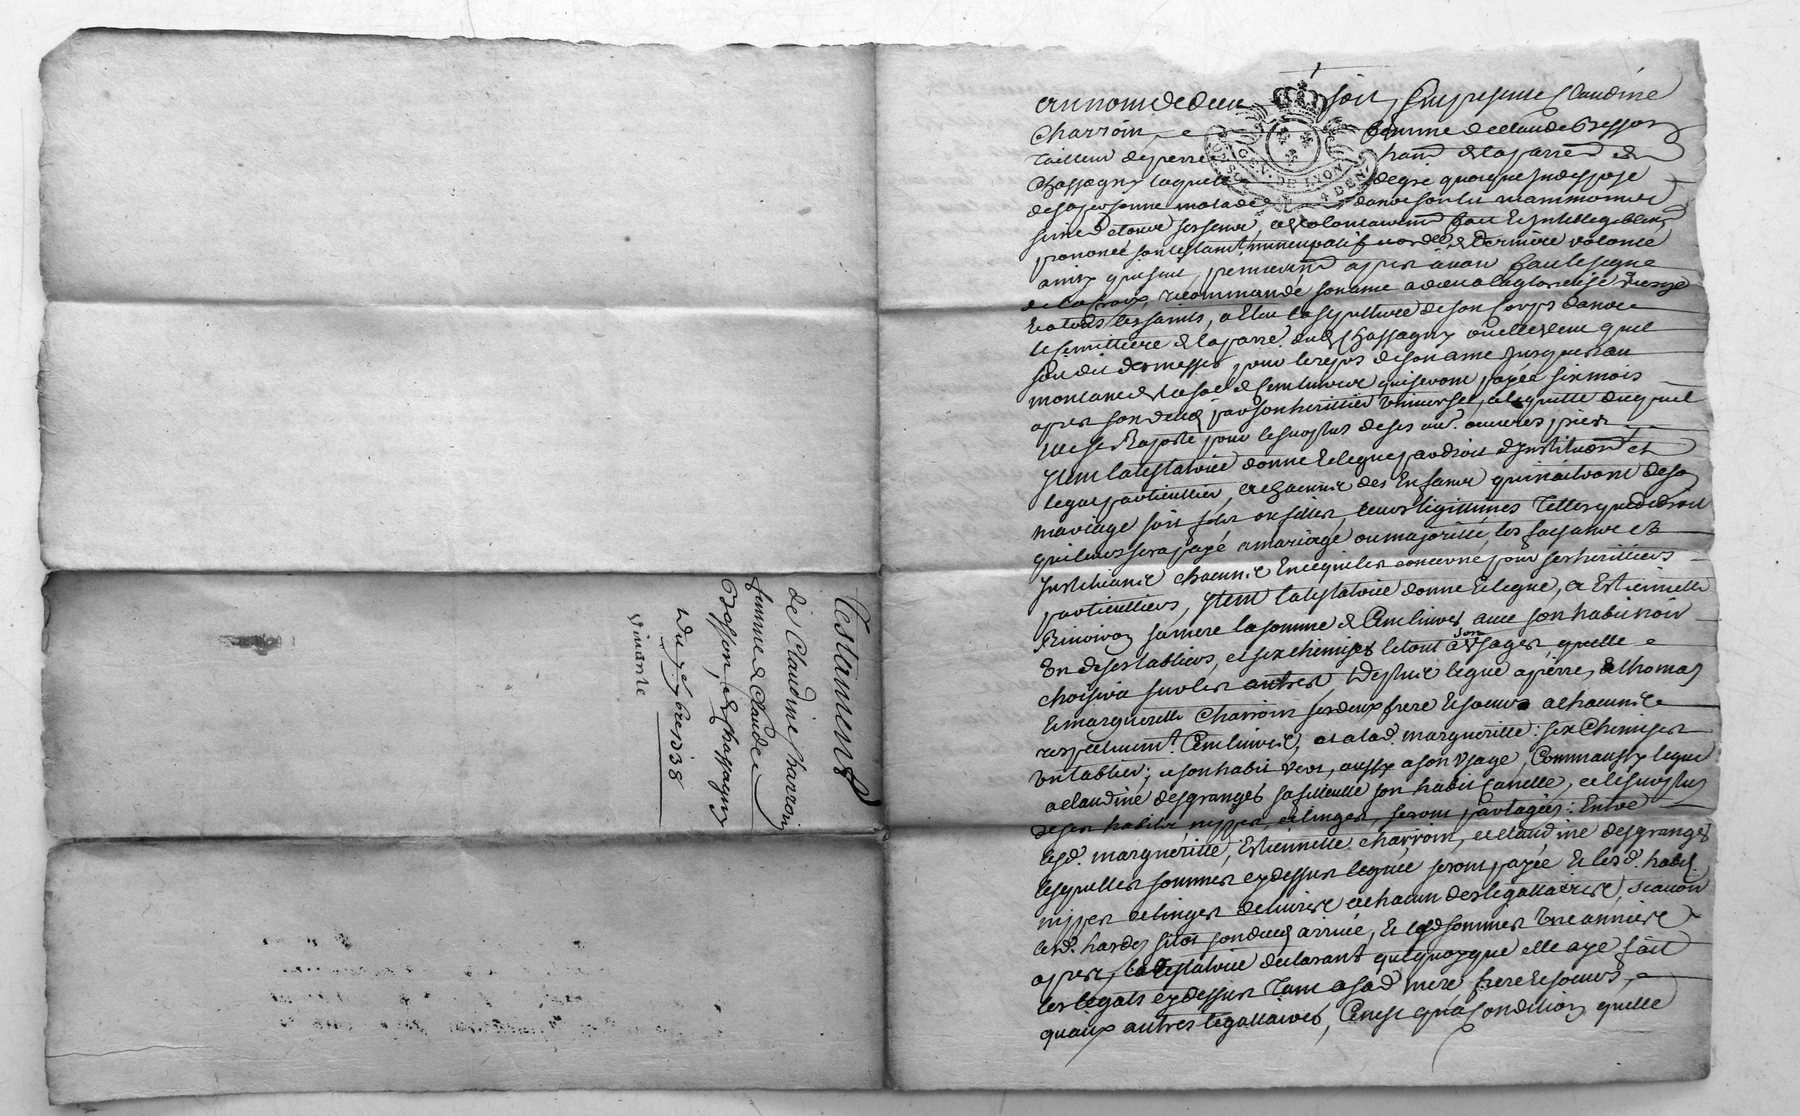 Testament
de Claudine Charroin
femme de Claude
Besson, de Chassagny
Du 7e 7bre 1738
Vivante
Au nom de dieu soit, fut presente Claudine
Charroin, femme de Claude Besson
Tailleur de pierre hant de la parre de
Chassagny laquelle de gré quoique indisposé
de sa personne malade dans son lit neanmoins
saine de tous ses sens, a volontairemt fait et intelligiblemt
prononcé son testamt nuncupatif et derniere volonté
ainsy que suit, premieremt apres avoir fait le signe
de la Croix, recommandé son ame a dieu a la glorieuse Vierge
et a tous les saints, a elu la sepulture de son Corps dans
le semittiere de la parre dud. Chassagny ou elle veut quil
soit dit des messes pour le repos de son ame jusques au
montant de la so[e] de Cent livres qui seront payée six mois
apres son deces par son heritier universel, a laquelle duquel
elle se Raporte pour le surplus de ses au. oeuvres pies
Item la testatrice donne et legue par droit d'institution et
legat particullier, a chacun des Enfans qui naitront de son
mariage soit fils ou filles, leurs legitimes telles que de droit
qui leurs sera payé a mariage ou majorité, les faisant et
instituant chacun En ce qui les concerne pour ses heritiers
particulliers, Item la testatrice donne et legue, a Estiennette
sa mere la somme de Cent livres avec son habit noir
un de ses tabliers, et six chemises le tout a son usage, quelle
choisira sur les autres, De plus legue a pierre, & thomas
et margueritte Charroin ses deux frere et soeur a chacun
respectivemt Cent livres, et a lad. margueritte six Chemises
un tablier, et son habit vert, aussy a son usage, Comm aussy legue
a claudine desgranges sa filleulle son habit canelle, et le surplus
de ses habits nippes, et linges, seront partagées Entre
lesd. marguerite, Estiennette charroin, et claudine desgranges
lesquelles sommes cy dessus leguée seront payée et lesd. habits
nippes et linges delivrés a chacun des legattaires, scavoir
lesd. hardes sitot son deces arrivé, et lesd sommes une année
apres, la testatrice declarant que quoyque elle aye fait
les legats cy dessus tant a sad. mere frere et soeurs,
quaux autres legattaires, Ce nest qu'a Condition quelle